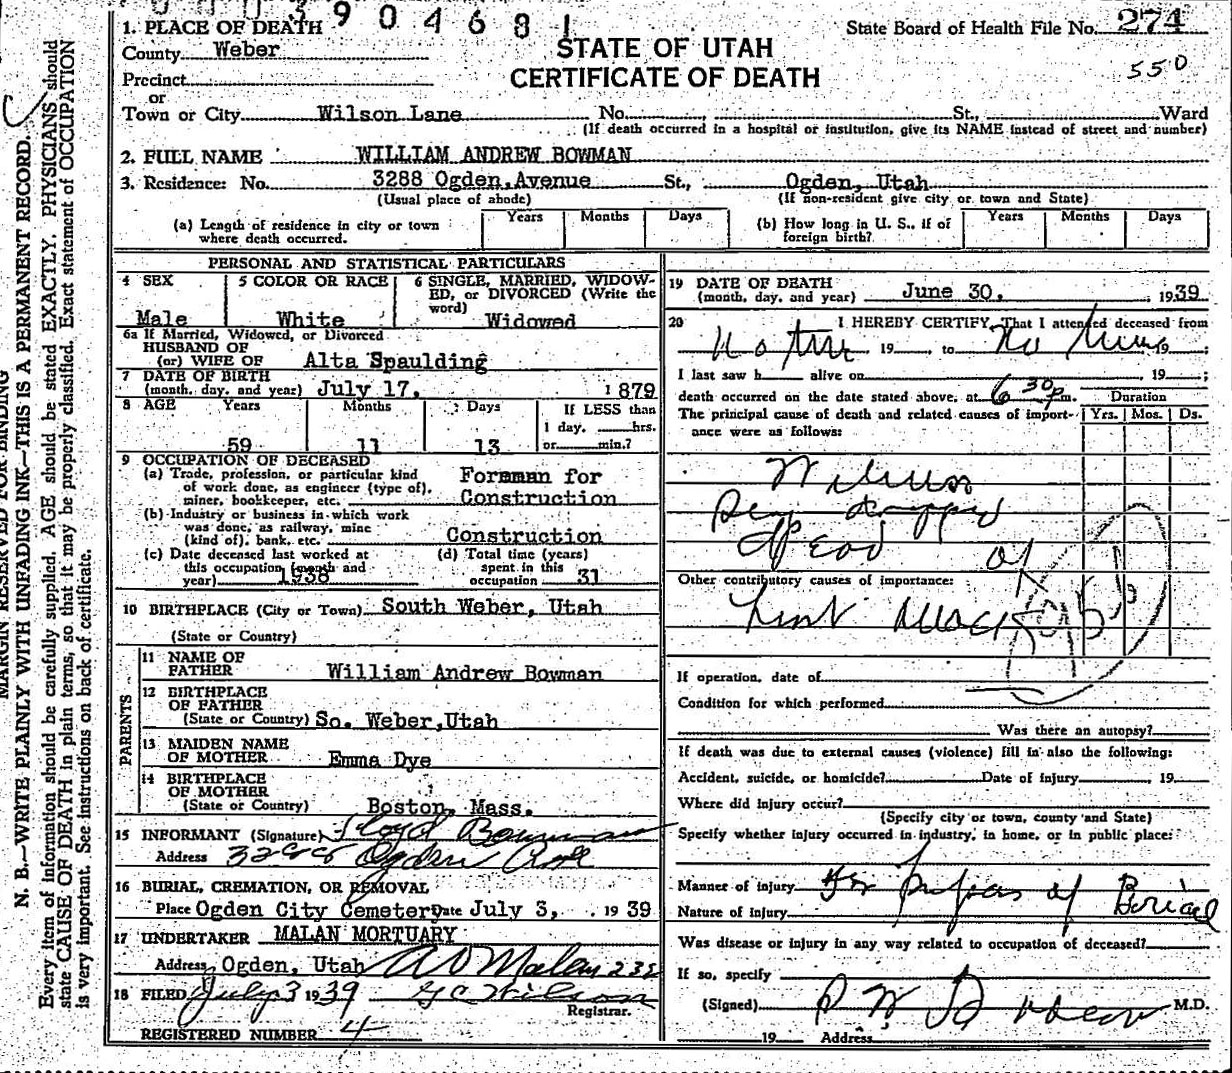 3904681
1. PLACE OF DEATH
State Board of Health File No. 274
County Weber
STATE OF UTAH
550
Precinct
CERTIFICATE OF DEATH
or
Town or City Wilson Lane No. St., Ward
(If death occurred in a hospital or institution, give its NAME instead of street and number)
2. FULL NAME WILLIAM ANDREW BOWMAN
3. Residence: No. 3288 Ogden, Avenue St., Ogden, Utah
(Usual place of abode) (If non-resident give city or town and State)
(a) Length of residence in city or town where death occurred. Years Months Days (b) How long in U. S., if of foreign birth? Years Months Days
PERSONAL AND STATISTICAL PARTICULARS
4 SEX 5 COLOR OR RACE 6 SINGLE, MARRIED, WIDOW-
ED, or DIVORCED (Write the
word)
Male White Widowed
6a If Married, Widowed, or Divorced
HUSBAND OF
(or) WIFE OF Alta Spaulding
7 DATE OF BIRTH
(month, day, and year) July 17, 1879
8 AGE Years Months Days If LESS than
1 day, hrs.
59 11 13 or min.?
9 OCCUPATION OF DECEASED
(a) Trade, profession, or particular kind Foreman for
of work done, as engineer (type of),
miner, bookkeeper, etc. Construction
(b) Industry or business in which work
was done, as railway, mine
(kind of), bank, etc. Construction
(c) Date deceased last worked at (d) Total time (years)
this occupation (month and spent in this
year) 1938 occupation 31
10 BIRTHPLACE (City or Town) South Weber, Utah
(State or Country)
PARENTS
11 NAME OF
FATHER William Andrew Bowman
12 BIRTHPLACE
OF FATHER
(State or Country) So. Weber, Utah
13 MAIDEN NAME
OF MOTHER Emma Dye
14 BIRTHPLACE
OF MOTHER
(State or Country) Boston, Mass.
15 INFORMANT (Signature) Floyd Bowman
Address 3288 Ogden Ave
16 BURIAL, CREMATION, OR REMOVAL
Place Ogden City Cemetery Date July 3, 1939
17 UNDERTAKER MALAN MORTUARY
Address Ogden, Utah A O Malan 238
18 FILED July 3 1939 G C Wilson
Registrar.
REGISTERED NUMBER 4
19 DATE OF DEATH
(month, day, and year) June 30, 1939
20 I HEREBY CERTIFY, That I attended deceased from
no time 19 , to no time 19 ;
I last saw h alive on , 19 ;
death occurred on the date stated above, at 6 30 p m. Duration
The principal cause of death and related causes of import- Yrs. Mos. Ds.
ance were as follows:
Witness
Say dropped
dead of
Other contributory causes of importance:
heart attack
95b
If operation, date of
Condition for which performed
Was there an autopsy?
If death was due to external causes (violence) fill in also the following:
Accident, suicide, or homicide? Date of injury , 19
Where did injury occur?
(Specify city or town, county and State)
Specify whether injury occurred in industry, in home, or in public place:
Manner of injury for purpose of Burial
Nature of injury
Was disease or injury in any way related to occupation of deceased?
If so, specify
(Signed) M.D.
19 Address
MARGIN RESERVED FOR BINDING
N. B.—WRITE PLAINLY WITH UNFADING INK—THIS IS A PERMANENT RECORD.
Every item of information should be carefully supplied. AGE should be stated EXACTLY. PHYSICIANS should
state CAUSE OF DEATH in plain terms, so that it may be properly classified. Exact statement of OCCUPATION
is very important. See instructions on back of certificate.